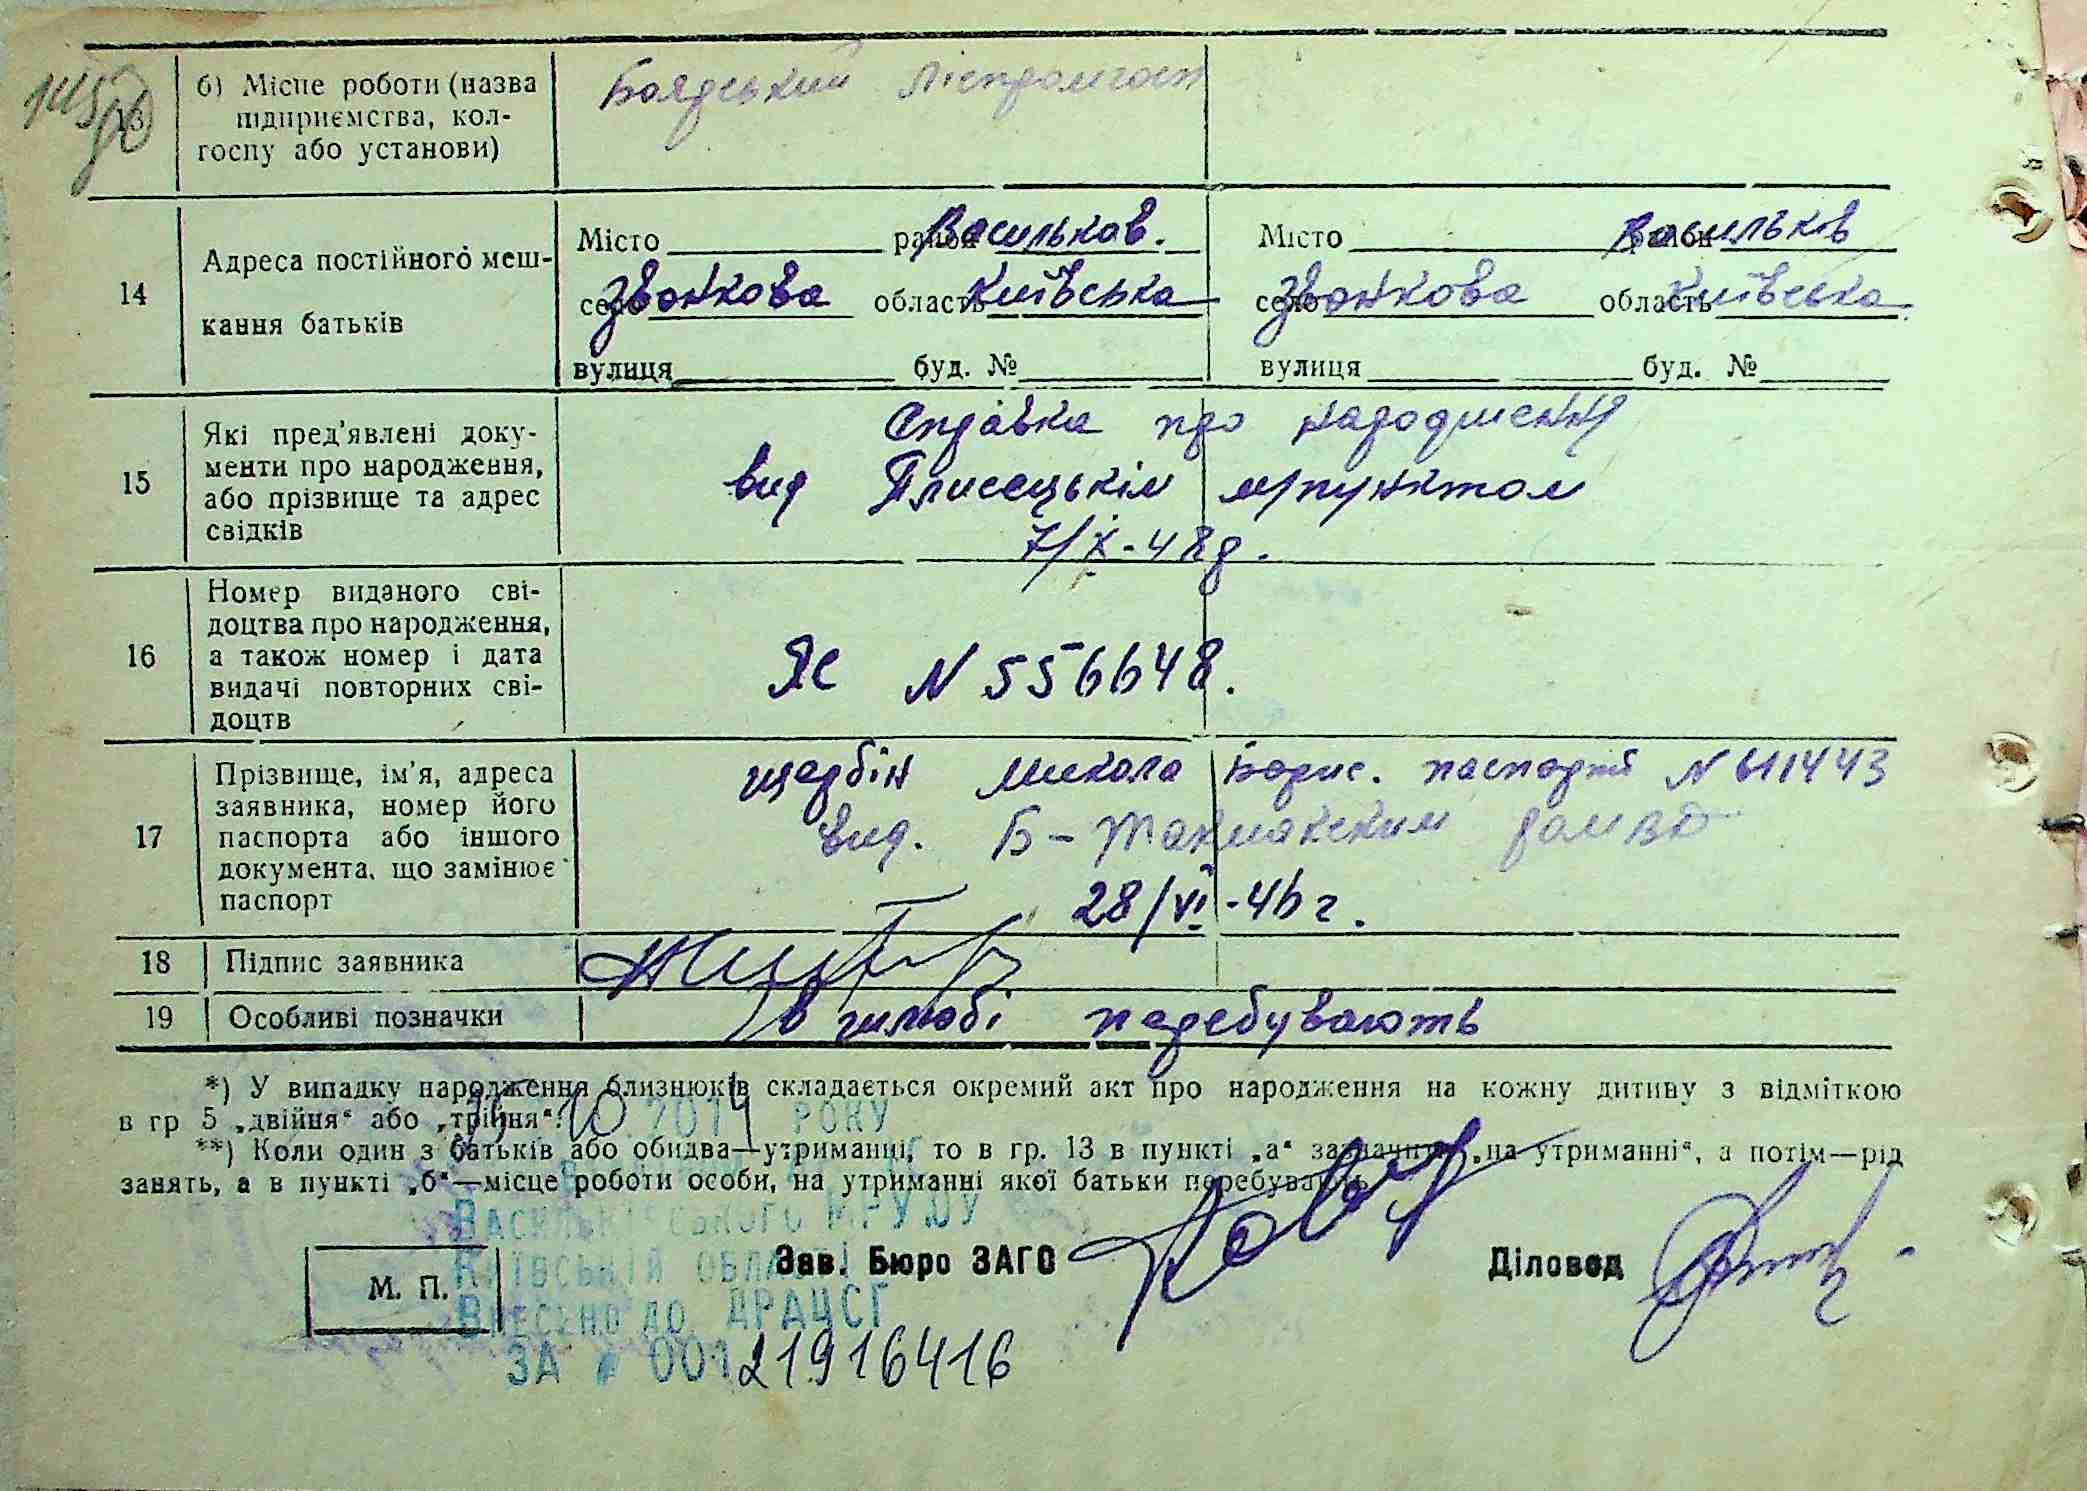 13
б) Місце роботи (назва
підприємства, кол-
госпу або установи)
Боярський Ліспромгосп
14
Адреса постійного меш-
кання батьків
Місто район Васильков.
село Звонкова область Київська
вулиця буд. №
Місто район Васильків
село Звонкова область Київська
вулиця буд. №
15
Які пред'явлені доку-
менти про народження,
або прізвище та адрес
свідків
Справка про народження
вид Плисецькім м/пунктом
7/X-48р.
16
Номер виданого сві-
доцтва про народження,
а також номер і дата
видачі повторних сві-
доцтв
ЯС N 556648.
17
Прізвище, ім'я, адреса
заявника, номер його
паспорта або іншого
документа, що замінює
паспорт
Щербін Микола Борис. паспорт N 611443
вид. Б-Токмакским
28/VI-46 г.
18
Підпис заявника
19
Особливі позначки
В шлюбі перебувають
*) У випадку народження близнюків складається окремий акт про народження на кожну дитину з відміткою
в гр 5 „двійня“ або „трійня“.
**) Коли один з батьків або обидва—утриманці, то в гр. 13 в пункті „а“ зазначити „на утриманні“, а потім—рід
занять, а в пункті „б“—місце роботи особи, на утриманні якої батьки перебувають.
10 2014 РОКУ
ВАСИЛЬКІВСЬКОГО МРУЮ
КИЇВСЬКІЙ ОБЛАСТІ
ВНЕСЕНО ДО ДРАЦСГ
ЗА № 00121916416
М. П.
Зав. Бюро ЗАГС
Діловод